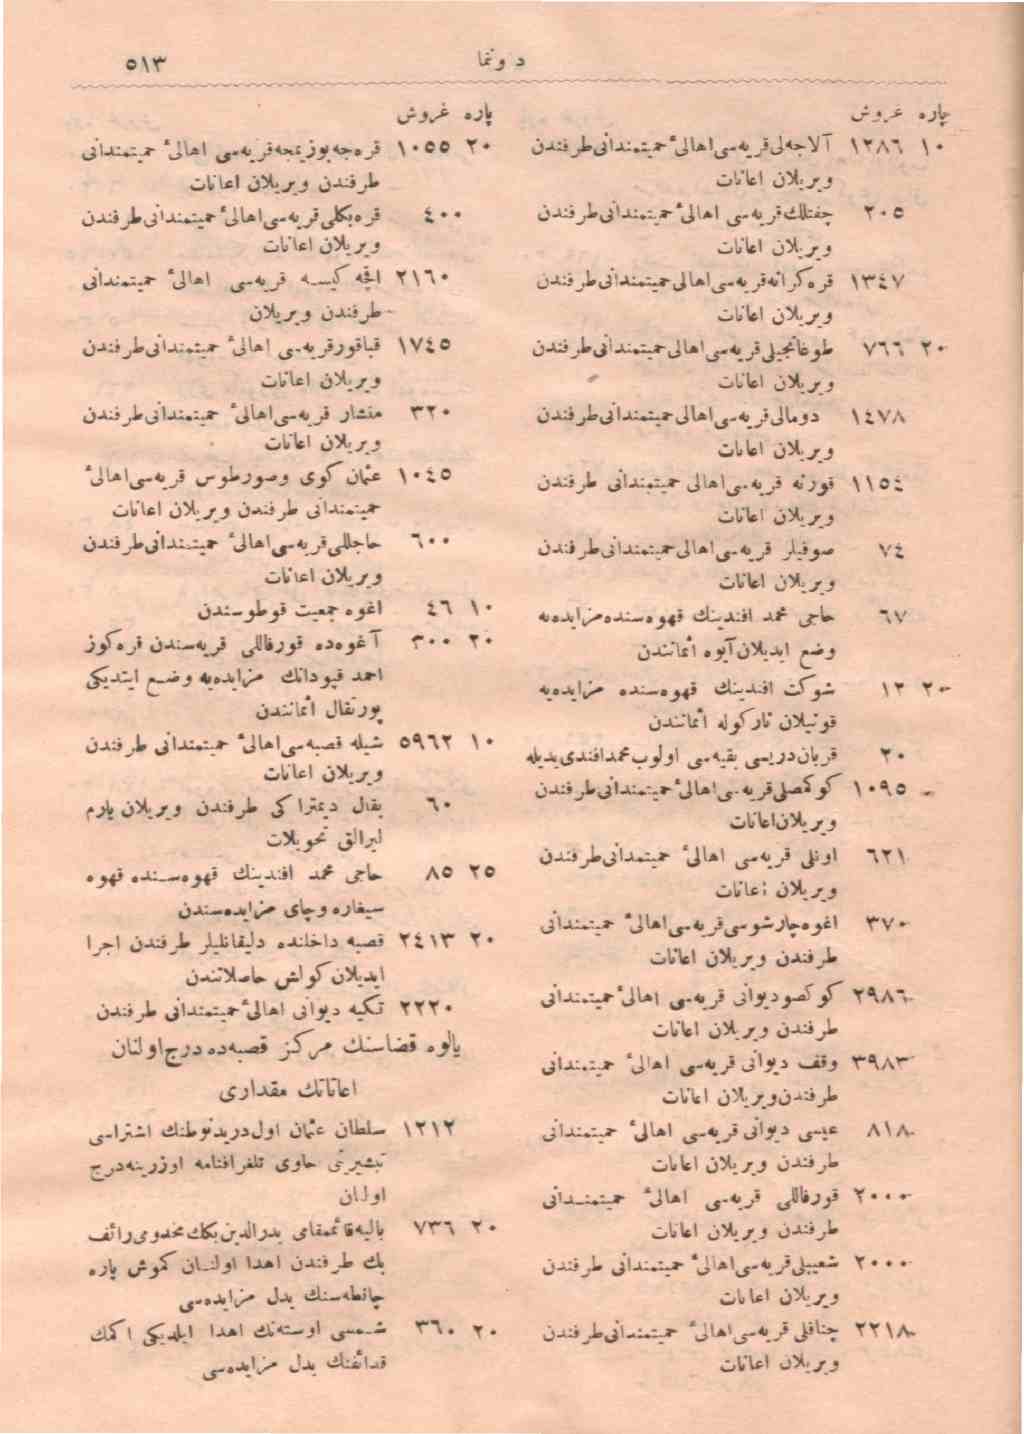 دونما ٥١٣
پاره غروش
١٠ ١٢٨٦ آلاجه‌لی قریه‌سی اهالئ حمیتمندانی طرفندن
ویریلان اعانات
٢٠٥ چفتلك قریه‌سی اهالئ حمیتمندانی طرفندن
ویریلان اعانات
١٣٤٧ قره‌کرانه قریه‌سی اهالی حمیتمندانی طرفندن
ویریلان اعانات
٢٠ ٧٦٦ طوغانجیلی قریه‌سی اهالی حمیتمندانی طرفندن
ویریلان اعانات
١٤٧٨ دومالی قریه‌سی اهالی حمیتمندانی طرفندن
ویریلان اعانات
١١٥٤ قورنه قریه‌سی اهالی حمیتمندانی طرفندن
ویریلان اعانات
٧٤ صوفیلر قریه‌سی اهالی حمیتمندانی طرفندن
ویریلان اعانات
٦٧ حاجی محمد افندینك قهوه‌سنده مزایده‌یه
وضع ایدیلان آیوه أثماننندن
٢٠ ١٢ شوکت افندینك قهوه‌سنده مزایده‌یه
قونیلان نارکوله أثماننندن
٢٠ قربان دریسی بقیه‌سی اولوب محمد افندی یدیله
١٠٩٥ کوکمصلی قریه‌سی اهالئ حمیتمندانی طرفندن
ویریلان اعانات
٦٢١ اونلی قریه‌سی اهالئ حمیتمدانی طرفندن
ویریلان اعانات
٣٧٠ اغوه چارشوسی قریه‌سی اهالئ حمیتمندانی
طرفندن ویریلان اعانات
٢٩٨٦ کوکصو دیوانی قریه‌سی اهالئ حمیتمندانی
طرفندن ویریلان اعانات
٣٩٨٣ وقف دیوانی قریه‌سی اهالئ حمیتمندانی
طرفندن ویریلان اعانات
٨١٨ عیسی دیوانی قریه‌سی اهالئ حمیتمندانی
طرفندن ویریلان اعانات
٢٠٠٠ قورفاللی قریه‌سی اهالئ حمیتمندانی
طرفندن ویریلان اعانات
٢٠٠٠ شعیبلی قریه‌سی اهالئ حمیتمندانی طرفندن
ویریلان اعانات
٢٢١٨ چنافلی قریه‌سی اهالئ حمیتمندانی طرفندن
ویریلان اعانات
پاره غروش
٢٠ ١٠٥٥ قره‌جه‌بوزیمجه قریه‌سی اهالئ حمیتمندانی
طرفندن ویریلان اعانات
٤٠٠ قره‌بکلی قریه‌سی اهالئ حمیتمندانی طرفندن
ویریلان اعانات
٢١٦٠ اقچه کیسه قریه‌سی اهالئ حمیتمندانی
طرفندن ویریلان
١٧٤٥ قباقور قریه‌سی اهالئ حمیتمندانی طرفندن
ویریلان اعانات
٣٢٠ منشار قریه‌سی اهالئ حمیتمندانی طرفندن
ویریلان اعانات
١٠٤٥ عثمان کوی وصورطوس قریه‌سی اهالئ
حمیتمندانی طرفندن ویریلان اعانات
٦٠٠ حاجللی قریه‌سی اهالئ حمیتمندانی طرفندن
ویریلان اعانات
١٠ ٤٦ اغوه جمعیت قوطوسندن
٢٠ ٣٠٠ آغوه‌ده قورفاللی قریه‌سندن قره‌کوز
احمد قپودانك مزایده‌یه وضع ایتدیکی
پورتقال أثماننندن
١٠ ٥٩٦٢ شیله قصبه‌سی اهالئ حمیتمندانی طرفندن
ویریلان اعانات
٦٠ بقال دیمتراکی طرفندن ویریلان یارم
لیرالق تحویلات
٢٥ ٨٥ حاجی محمد افندینك قهوه‌سنده قهوه
سیغاره وچای مزایده‌سندن
٢٠ ٢٤١٣ قصبه داخلنده دلیقانلیلر طرفندن اجرا
ایدیلان کولش حاصلاتندن
٢٢٢٠ تکیه دیوانی اهالئ حمیتمندانی طرفندن
یالوه قضاسنك مرکز قصبه‌ده درج اولنان
اعاناتك مقداری
١٢١٢ سلطان عثمان اول دریدنوطنك اشتراسی
تبشیرینی حاوی تلغرافنامه اوزرینه درج
اولنان
٢٠ ٧٣٦ یالیه قائممقامی بدرالدین بکك مخدومی رائف
بك طرفندن اهدا اولنان کموش پاره
چانطه‌سنك بدل مزایده‌سی
٢٠ ٣٦٠ شمسی اوسته‌نك اهدا ایلدیکی اکمك
قدائفنك بدل مزایده‌سی